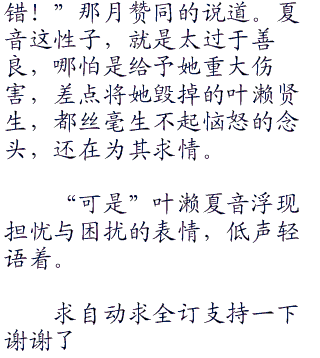 错！”那月赞同的说道。夏
音这性子，就是太过于善
良，哪怕是给予她重大伤
害，差点将她毁掉的叶濑贤
生，都丝毫生不起恼怒的念
头，还在为其求情。
“可是”叶濑夏音浮现
担忧与困扰的表情，低声轻
语着。
求自动求全订支持一下
谢谢了